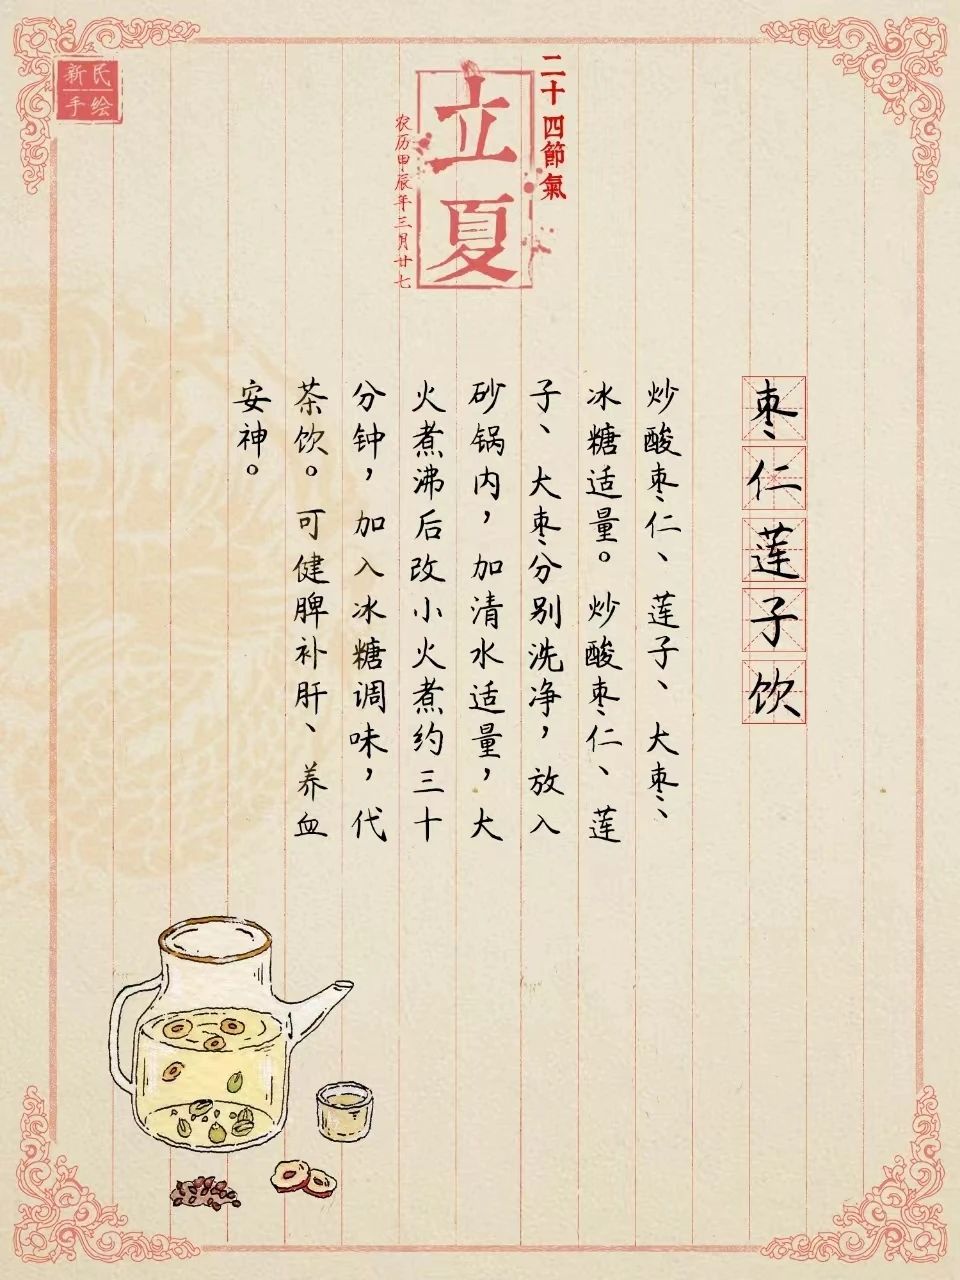 新民
手绘
二十四節氣
立夏
农历甲辰年三月廿七
枣仁莲子饮
炒酸枣仁、莲子、大枣、
冰糖适量。炒酸枣仁、莲
子、大枣分别洗净，放入
砂锅内，加清水适量，大
火煮沸后改小火煮约三十
分钟，加入冰糖调味，代
茶饮。可健脾补肝、养血
安神。